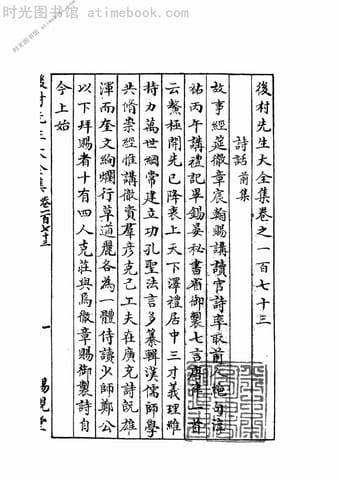 时光图书馆 - atimebook.com
後村先生大全集卷之一百七十三
詩話前集
故事經筵徹章宸翰賜講讀官詩率取前人絶句淳
祐丙午講禮記畢錫宴秘書省御製七言唐律一首
云鰲極開先已降衷上天下澤禮居中三才義理維
持力萬世綱常建立功孔聖法言多纂輯漢儒師學
共脩崇經惟講徹賓羣彦克己工夫在廣充詩既雄
渾而奎文絢爛行草遒麗各為一體侍讀少師鄭公
以下拜賜者十有四人克莊與焉徹章賜御製詩自
今上始
後村先生大全集卷一百七十三
一
賜硯堂